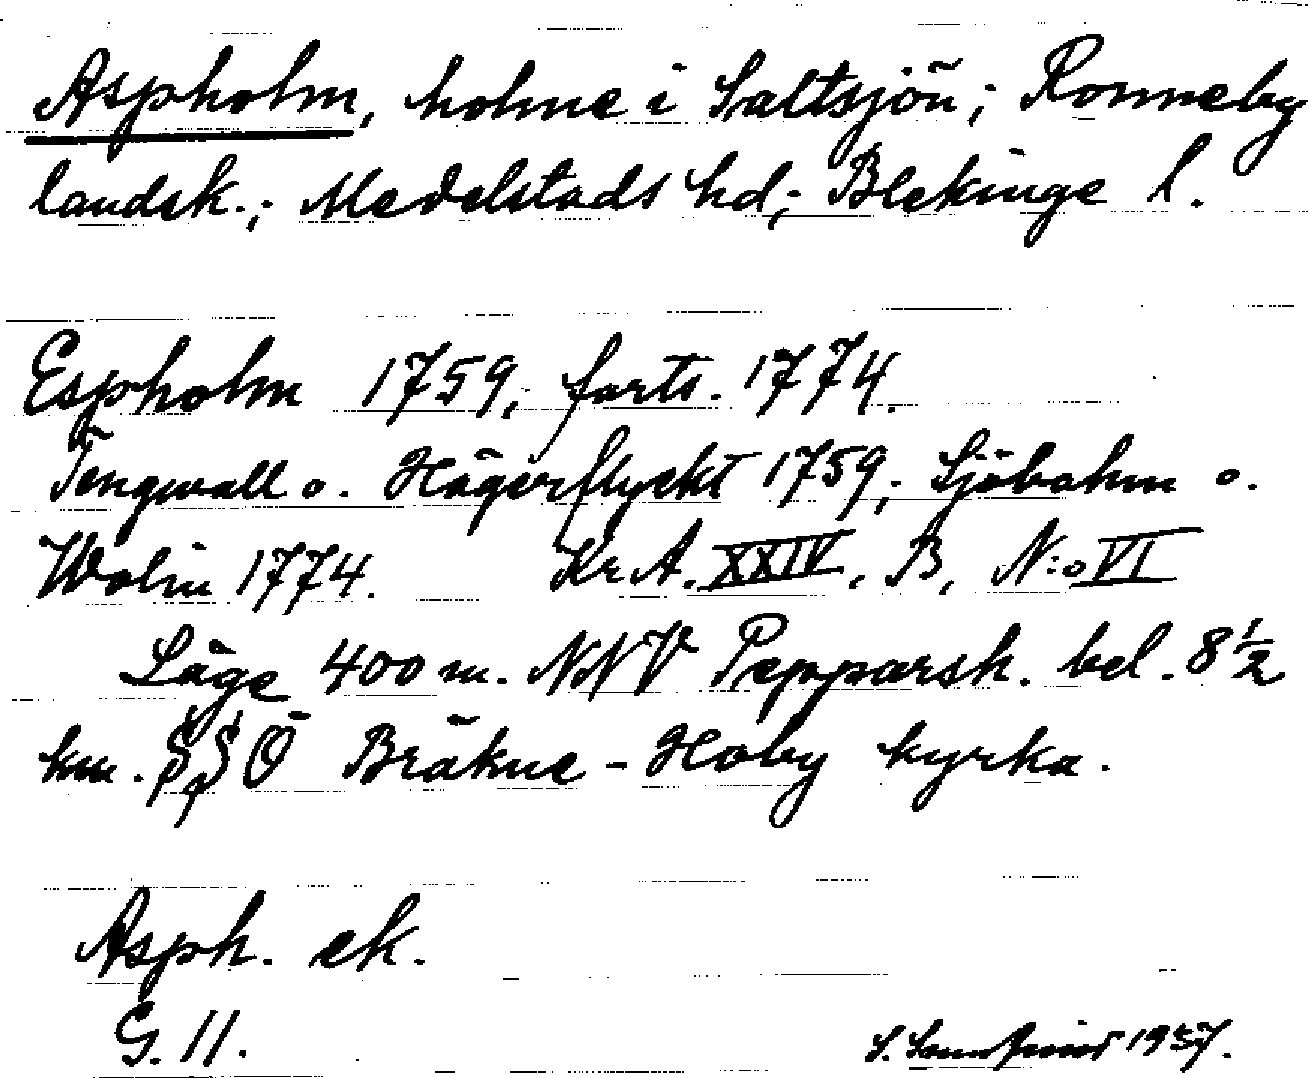 Aspholm, holme i Saltsjön; Ronneby
landsk.; Medelstads hd; Blekinge l.
Espholm 1759, forts. 1774.
Tengwall o. Hägerflyckt 1759; Sjöbohm o.
Wolin 1774. Kr. A. XXIV, B, N:o VI
Läge 400 m. NNV Pepparsk. bel. 8 1/2
km. SSÖ Bräkne-Hoby kyrka.
Asph. ek.
G. 11.
S. 1937.